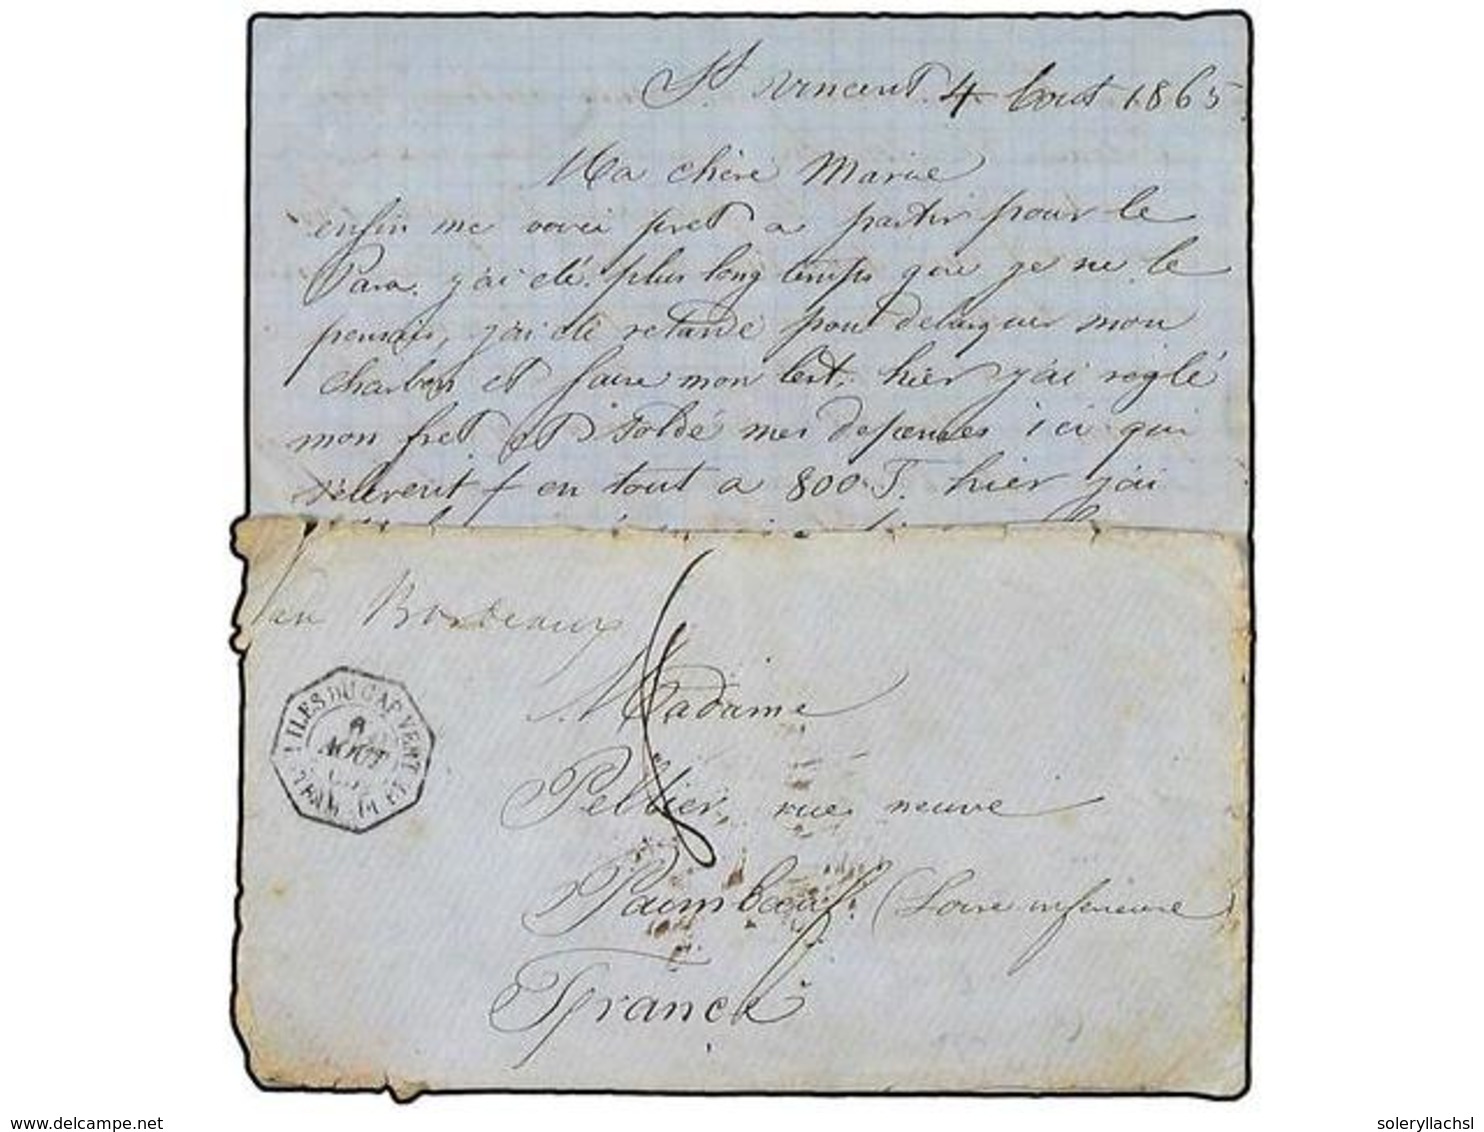 St Vincent. 4 Aout 1865
Ma chère Marie
enfin me voici pret a partir pour le
Para. j'ai été plus long temps que je ne le
pensais, j'ai été retardé pour debarquer mon
charbon et faire mon lest, hier j'ai réglé
mon fret et soldé mes depenses ici qui
s'élevent en tout a 800 F. hier j'ai
Bordeaux
Madame
Pellier, rue neuve
Paimboeuf. (Loire inferieure)
France
ILES DU CAP VERT
AOUT
www.delcampe.net
soleryllachsl